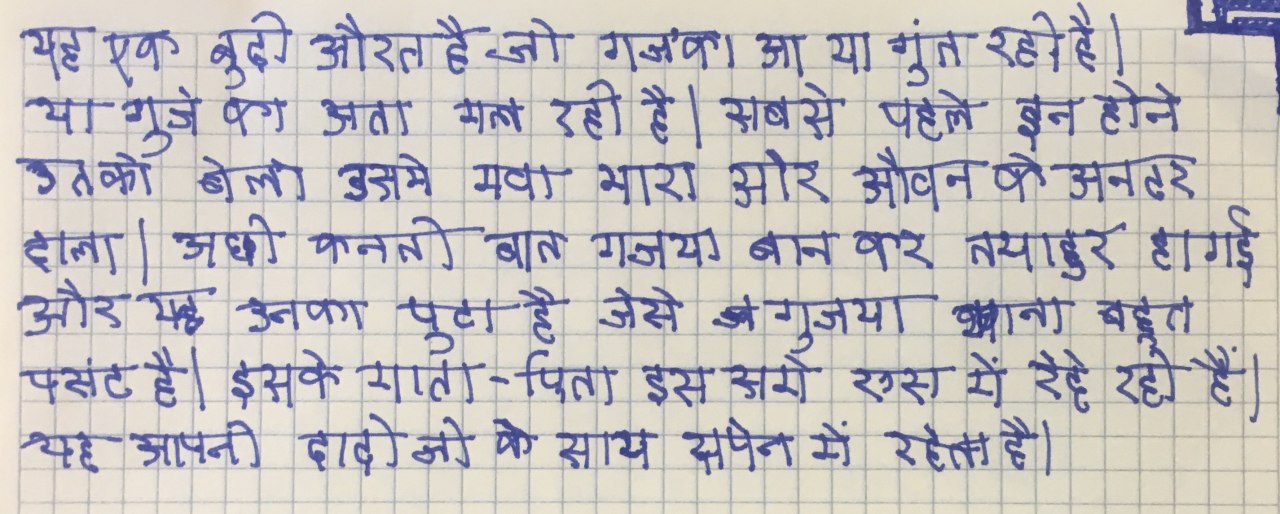 यह एक बुढी औरत है जो गजंका आ या गुंत रही है।
या गुजे का अता मल रही है। सबसे पहले इन होने
उतको बेला उसमे मवा भारा और औवन के अनदर
डाला। अछी कनती बात गजया बान कर तयाहुर हागई
और यह उनका पुटा है जेसे गुजया खाना बहुत
पसंट है। इसके माता-पिता इस समे रुस में रेहे रही हैं।
यह आपनी दादी जी के साथ सपेन में रहेता है।